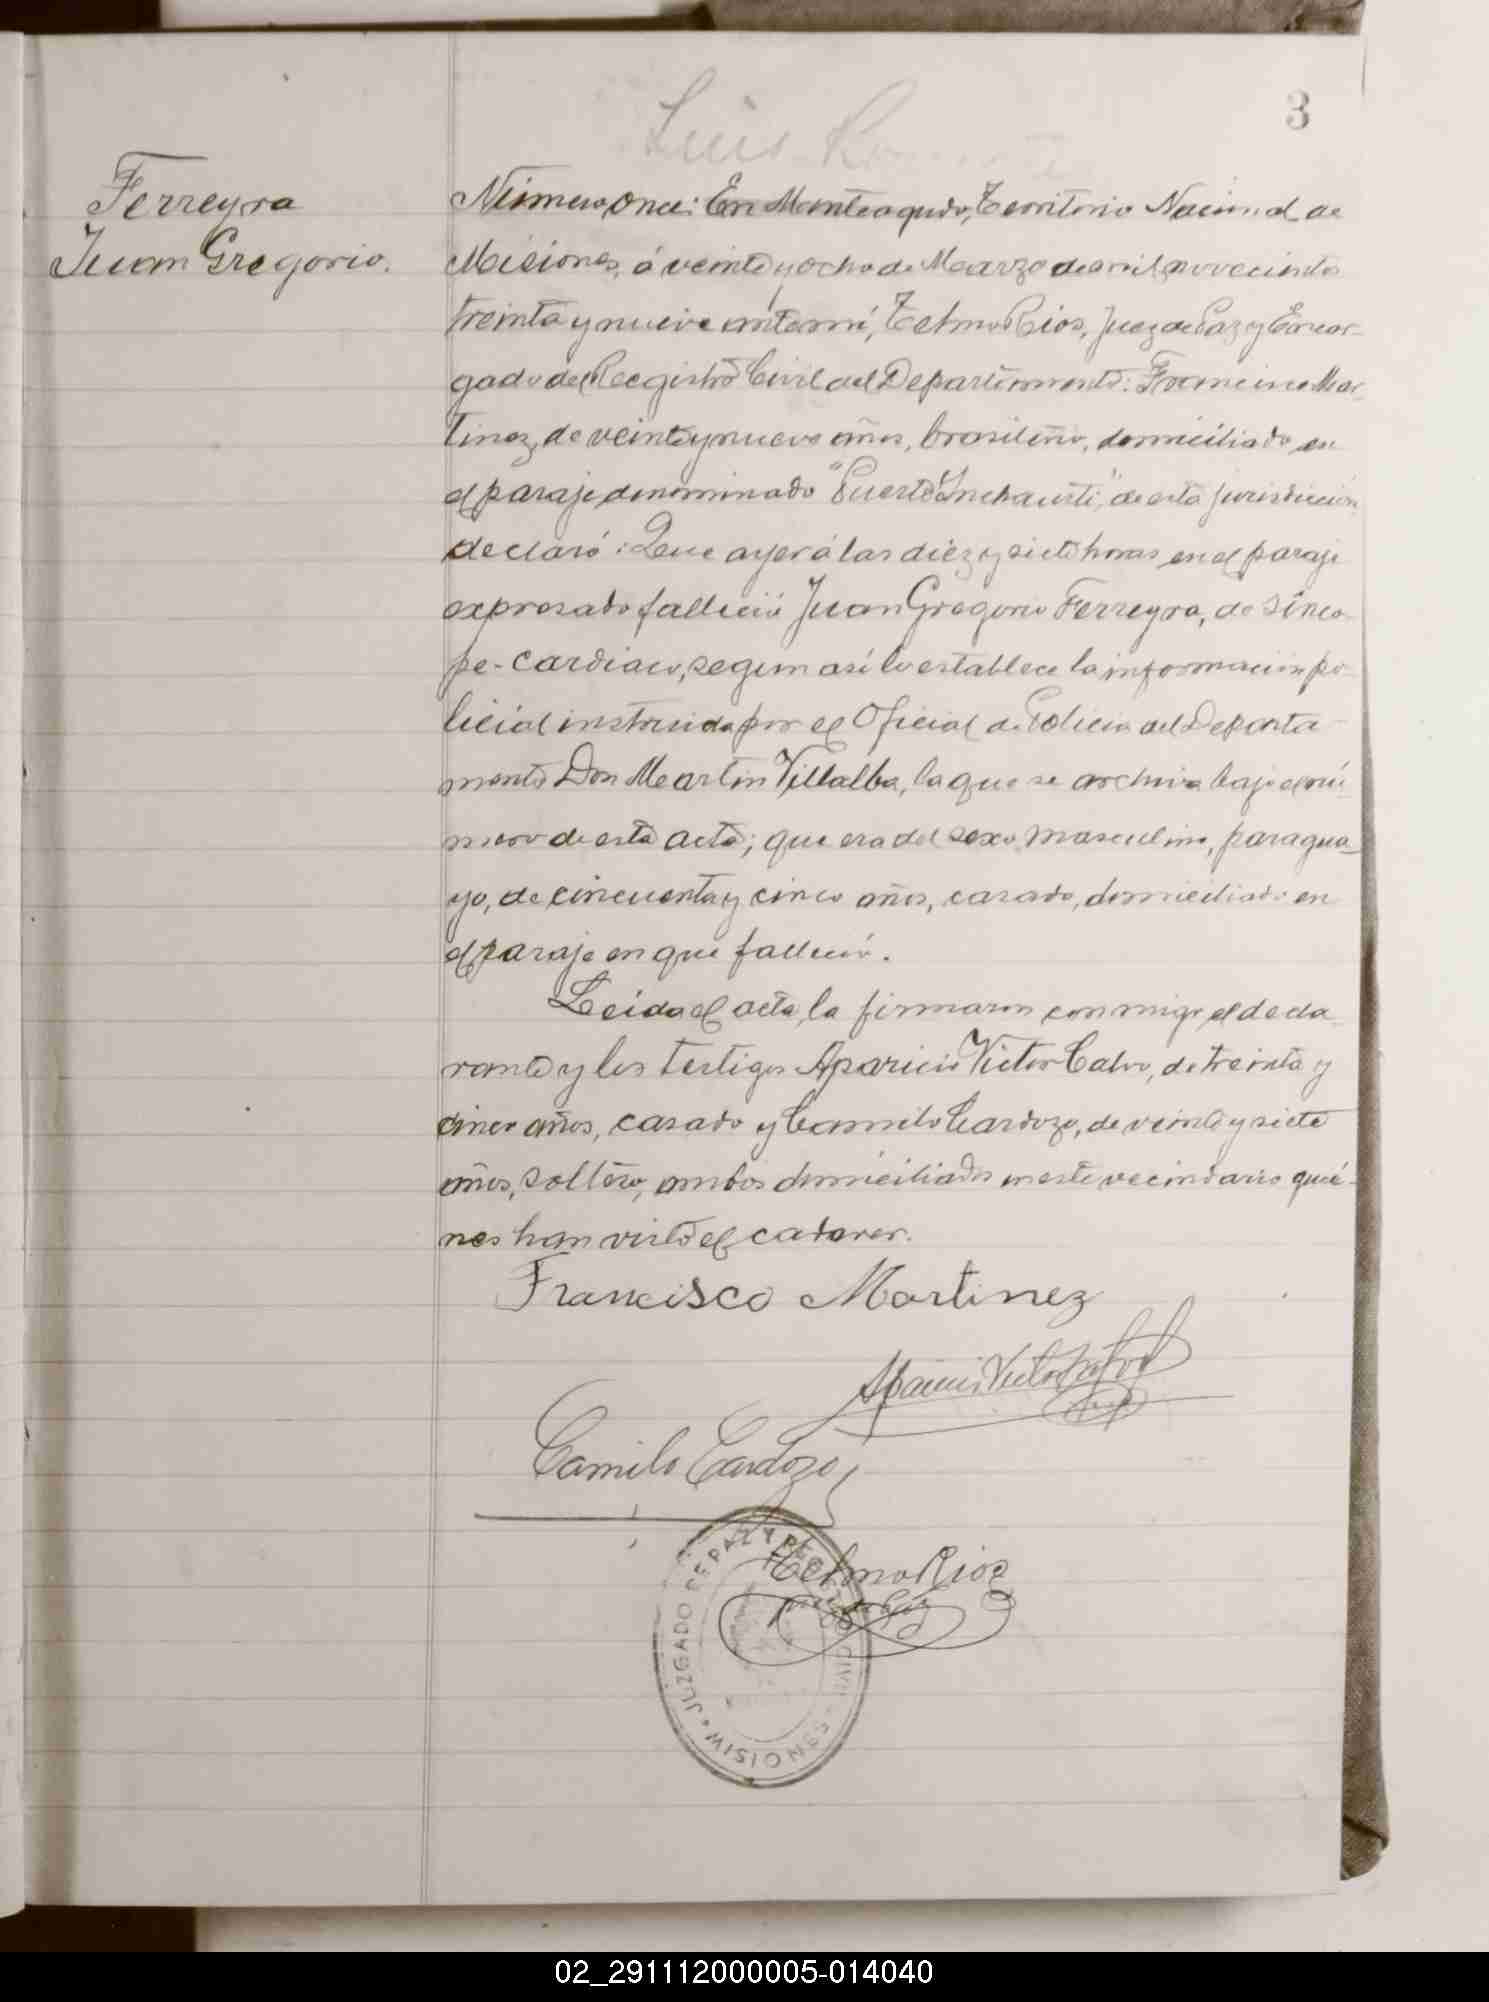 3
Luis
Ferreyra
Juan Gregorio.
Número once: En Monteagudo, Territorio Nacional de
Misiones, á veinte y ocho de Marzo de mil novecientos
treinta y nueve ante mí, Telmo Rios, Juez de Paz y Encar-
gado del Registro Civil del Departamento: Francisco Mar-
tinez, de veinte y nueve años, brasileño, domiciliado en
el paraje denominado "Puerto Inchausti," de esta jurisdicción
declaró: Que ayer á las diez y siete horas en el paraje
expresado falleció Juan Gregorio Ferreyra, de sinco-
pe-cardiaco, segun así lo establece la información po-
licial instruida por el Oficial de Policia del Departa-
mento Don Martin Villalba, la que se archiva bajo el nú-
mero de esta acta; que era del sexo masculino, paragua-
yo, de cincuenta y cinco años, casado, domiciliado en
el paraje en que falleció.
Leida el acta, la firmaron conmigo el decla-
rante y los testigos Aparicio Victor Calvo, de treinta y
cinco años, casado y Camilo Cardozo, de veinte y siete
años, soltero, ambos domiciliados en este vecindario quié-
nes han visto el cadaver.
Francisco Martinez
Aparicio Victor Calvo
Camilo Cardozo
Telmo Rios
Juez de Paz
JUZGADO DE PAZ Y REGISTRO CIVIL
MISIONES
02_291112000005-014040